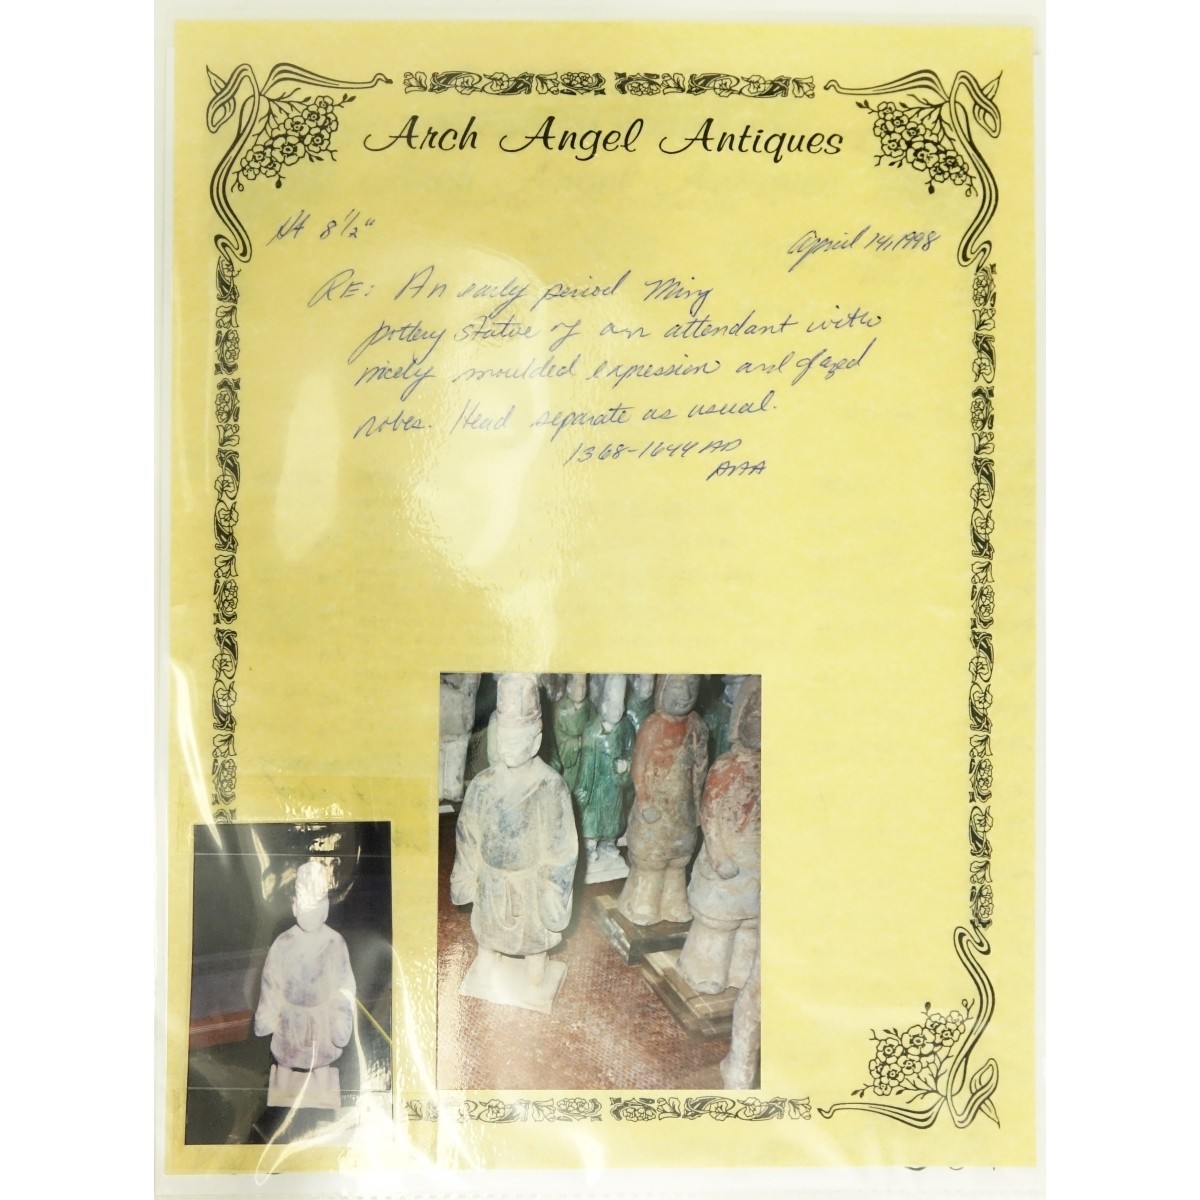 Arch Angel Antiques
Ht 8 1/2"
April 14, 1998
RE: An early period Ming
pottery statue of an attendant with
nicely moulded expression and glazed
robes. Head separate as usual.
1368-1644 AD